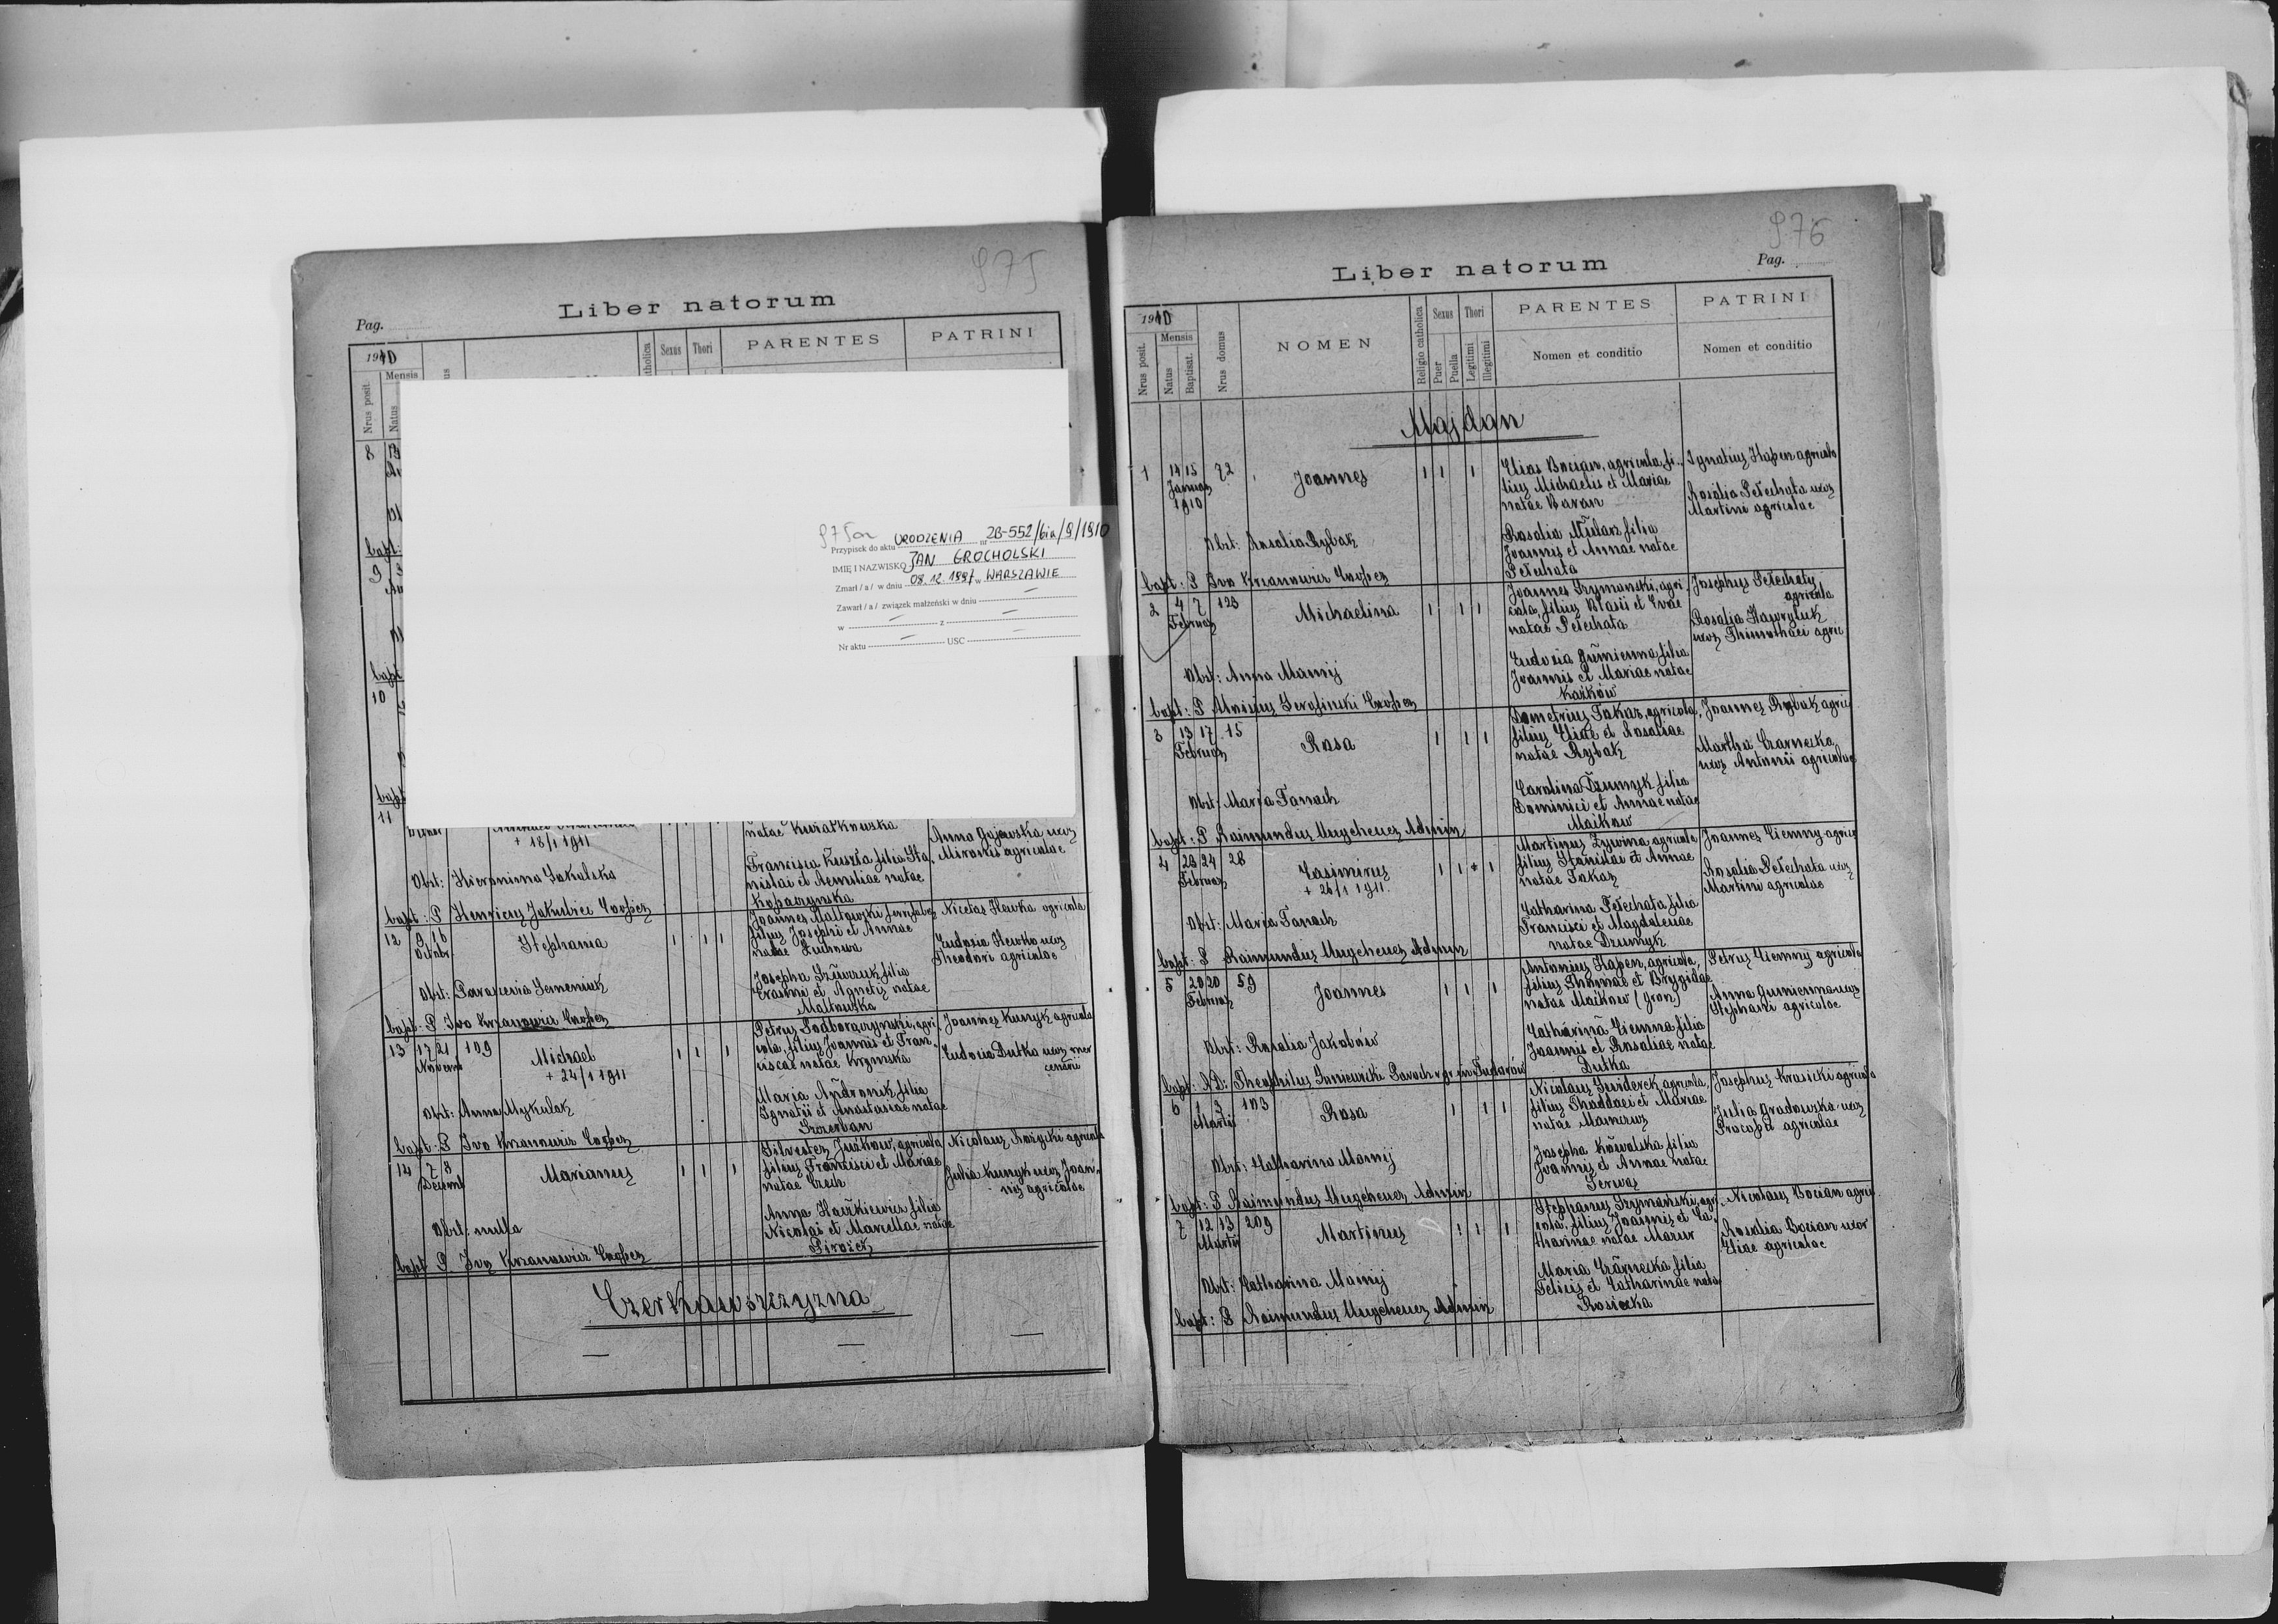 975
Liber natorum
Pag.
1910
Sexus
Thori
PARENTES
PATRINI
Mensis
Nrus posit.
Natus
8
bapt.
9
bapt
10
bapt
11
975a
Przypisek do aktu URODZENIA nr 2B-552/bia/9/1910
IMIĘ I NAZWISKO JAN GROCHOLSKI
Zmarł / a / w dniu 08.12.1997 w WARSZAWIE
Zawarł / a / związek małżeński w dniu —
w — z —
Nr aktu — USC —
+ 18/1 1911
Anna Gajewska uxor
Mironis agricolae
Francisca Kuszła filia Sta-
nislai et Aemiliae natae
Kopaczynska
Obst: Hieronima Zakulska
bapt: P Henricus Jakubiec Coop̄er
12 9 16 Octobr
Stephania
1 1 1
filius Josephi et Annae
Nicetas Hewka agricola
Eudoxia Hewko uxor
Theodori agricolae
Erasmi et Agnetis natae
Maltowska
Obst: Parascevia Semeniuk
bapt: P Ivo Krzanowicz Coop̄er
13 17 21 109
Novemb
Michael
+ 24/1 1911
1 1 1
Petrus Podhoraczynski, agri-
cola, filius Joannis et Fran-
ciscae natae Krzynska
Joannes Kunyk agricola
Eudocia Dutka uxor mer
cenarii
Maria Andronik filia
Ignatii et Anastasiae natae
Szczerban
Obst: Anna Mykulak
bapt: P Ivo Krzanowicz Coop̄er
14 7 8
Decemb
Marianus
1 1 1
Silvester Juzkow, agricola
filius Francisci et Mariae
natae Czech
Julia Kunyk uxor Joan-
nis agricolae
Anna Hawrkiewicz filia
Nicolai et Marcellae natae
Pirożek
Obst: nulla
bapt P Ivo Krzanowicz Coop̄er
Czerkawszczyzna
— — —
976
Liber natorum
Pag.
1910
Nrus posit.
Mensis
Natus
Baptisat.
Nrus domus
NOMEN
Religio catholica
Sexus
Puer
Puella
Thori
Legitimi
Illegitimi
PARENTES
Nomen et conditio
PATRINI
Nomen et conditio
Majdan
1 14 15 72
Januar
1910
Joannes
1 1 1
Elias Bocian, agricola, fi-
lius Michaelis et Mariae
natae Baran
Ignatius Hapen agricola
Rosalia Pełechata uxor
Martini agricolae
Rosalia Mularz filia
Joannis et Annae natae
Pełechata
Obst: Rosalia Rybak
bapt: P Ivo Krzanowicz Coop̄er
2 4 7 123
Februar
Michaelina
1 1 1
Joannes Szymanski, agri-
cola, filius Blasii et Evae
natae Pełechata
Josephus Pełechaty
agricola
Rosalia Hawryluk
uxor Thimothaei agric
Eudoxia Gumienna filia
Joannis et Mariae natae
Każków
Obst: Anna Mamij
bapt: P Aloisius Serafinski Coop̄er
3 13 17 15
Februar
Rosa
1 1 1
Demetrius Takaz, agricola,
filius Eliae et Rosaliae
natae Rybak
Joannes Rybak agric
Martha Czarnecka
uxor Antonii agricolae
Carolina Dzumyk filia
Dominici et Annae natae
Maikow
Obst: Maria Tanach
bapt: P Raimundus Mugeheuer Admin
4 23 24 28
Februar
Casimirus
+ 26/1 1911.
1 1 1
Martinus Zywina agricola
filius Stanislai et Annae
natae Takaz
Joannes Ciemny agric
Rosalia Pełechata uxor
Martini agricolae
Catharina Pełechata filia
Francisci et Magdalenae
natae Dzumyk
Obst: Maria Tanach
bapt: P Raimundus Mugeheuer Admin
5 20 20 59
Februar
Joannes
1 1 1
Antonius Hapen, agricola,
filius Thomae et Brygidae
natae Maikow (Gron)
Petrus Ciemny agricola
Anna Gumienna uxor
Stephani agricolae
Catharina Ciemna filia
Joannis et Rosaliae natae
Dutka
Obst: Rosalia Jakobów
6 1 3 103
Martii
Rosa
1 1 1
Nicolaus Swiderek agricola,
filius Thaddaei et Mariae
Josephus Krasicki agricola
Julia Gradowska uxor
Procopii agricolae
Josepha Kowalska filia
Joannis et Annae natae
Obst: Catharina Mamij
bapt: P Raimundus Mugeheuer Admin
7 12 13 209
Martii
Martinus
1 1 1
Stephanus Szymański, agri-
cola, filius Joannis et Ca-
tharinae natae Mazur
Nicolaus Bocian agric
Rosalia Bocian uxor
Eliae agricolae
Maria Czarnecka filia
Felicis et Catharinae natae
Rosicka
Obst: Catharina Mamij
bapt: P Raimundus Mugeheuer Admin